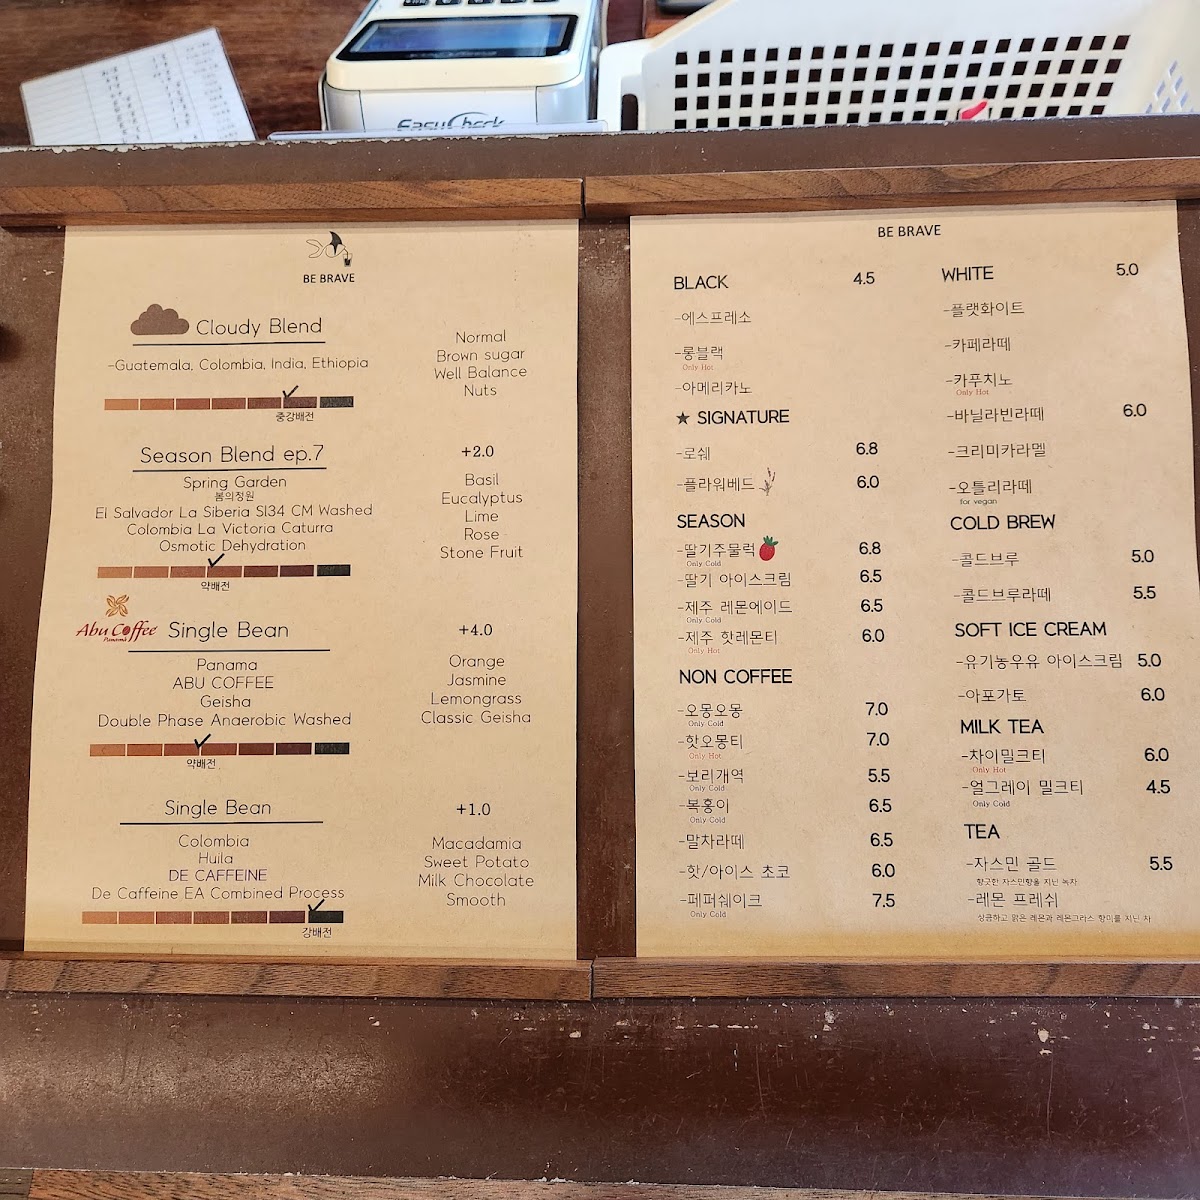 EasyCheck
BE BRAVE
Cloudy Blend
-Guatemala, Colombia, India, Ethiopia
중강배전
Normal
Brown sugar
Well Balance
Nuts
Season Blend ep.7
+2.0
Spring Garden
봄의정원
El Salvador La Siberia SL34 CM Washed
Colombia La Victoria Caturra
Osmotic Dehydration
약배전
Basil
Eucalyptus
Lime
Rose
Stone Fruit
Abu Coffee
Panama
Single Bean
+4.0
Panama
ABU COFFEE
Geisha
Double Phase Anaerobic Washed
약배전
Orange
Jasmine
Lemongrass
Classic Geisha
Single Bean
+1.0
Colombia
Huila
DE CAFFEINE
De Caffeine EA Combined Process
강배전
Macadamia
Sweet Potato
Milk Chocolate
Smooth
BE BRAVE
BLACK 4.5
-에스프레소
-롱블랙
Only Hot
-아메리카노
★ SIGNATURE
-로쉐 6.8
-플라워베드 6.0
SEASON
-딸기주물럭 6.8
Only Cold
-딸기 아이스크림 6.5
-제주 레몬에이드 6.5
Only Cold
-제주 핫레몬티 6.0
Only Hot
NON COFFEE
-오몽오몽 7.0
Only Cold
-핫오몽티 7.0
Only Hot
-보리개역 5.5
Only Cold
-복홍이 6.5
Only Cold
-말차라떼 6.5
-핫/아이스 초코 6.0
-페퍼쉐이크 7.5
Only Cold
WHITE 5.0
-플랫화이트
-카페라떼
-카푸치노
Only Hot
-바닐라빈라떼 6.0
-크리미카라멜
-오틀리라떼
for vegan
COLD BREW
-콜드브루 5.0
-콜드브루라떼 5.5
SOFT ICE CREAM
-유기농우유 아이스크림 5.0
-아포가토 6.0
MILK TEA
-차이밀크티 6.0
Only Hot
-얼그레이 밀크티 4.5
Only Cold
TEA
-자스민 골드 5.5
향긋한 자스민향을 지닌 녹차
-레몬 프레쉬
상큼하고 맑은 레몬과 레몬그라스 향미를 지닌 차